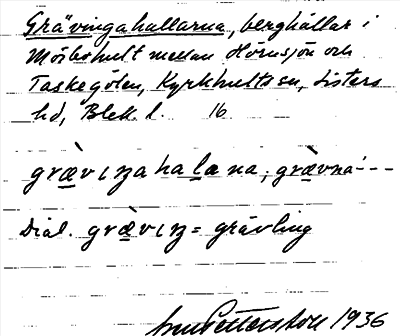 Grävingahallarna, berghällar i
Mörbohult mellan Hörnsjön och
Taskegölen, Kyrkhults sn, Listers
hd, Blek. l. 16
grævɩŋahalana, grævna---
Dial. grævɩŋ = grävling
Pettersson 1936